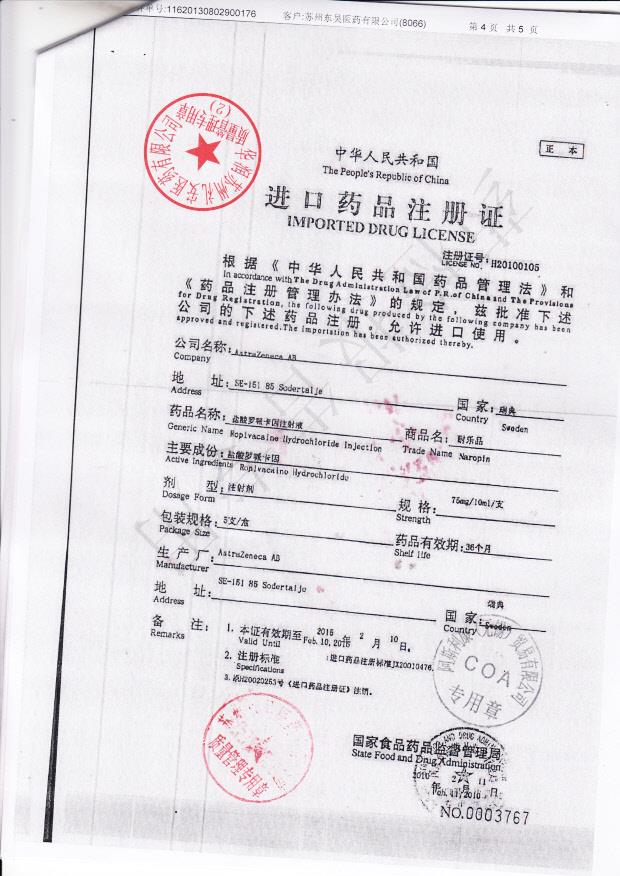 单号:11620130802900176 客户:苏州东昊医药有限公司(8066) 第 4 页 共 5 页
华润苏州礼安医药有限公司
质量管理专用章
(2)
正 本
中华人民共和国
The People's Republic of China
进口药品注册证
IMPORTED DRUG LICENSE
注册证号:H20100105
LICENSE NO.
根据《中华人民共和国药品管理法》和
In accordance with The Drug Administration Law of P.R.of China and The Provisions
《药品注册管理办法》的规定，兹批准下述
for Drug Registration, the following drug produced by the following company has been
公司的下述药品注册。允许进口使用。
approved and registered.The importation has been authorized thereby.
公司名称: AstraZeneca AB
Company
地 址: SE-151 85 Sodertalje
Address
国 家: 瑞典
Country Sweden
药品名称: 盐酸罗哌卡因注射液
Generic Name Ropivacaine Hydrochloride Injection
商品名: 耐乐品
Trade Name Naropin
主要成份: 盐酸罗哌卡因
Active Ingredients Ropivacaine Hydrochloride
剂 型: 注射剂
Dosage Form
规 格: 75mg/10ml/支
Strength
包装规格: 5支/盒
Package Size
药品有效期: 36个月
Shelf life
生 产 厂: AstraZeneca AB
Manufacturer
地 址: SE-151 85 Sodertalje
Address
国 家: 瑞典
Country Sweden
备 注:
Remarks
1. 本证有效期至 2015 年 2 月 10 日。
Valid Until Feb.10,2015
2. 注册标准 :进口药品注册标准JX20010476.
Specifications
3. 原H20020253号《进口药品注册证》注销。
COA
专用章
质量管理专用章
国家食品药品监督管理局
State Food and Drug Administration
2010 年 2 月 11 日
Feb.11,2010
NO.0003767